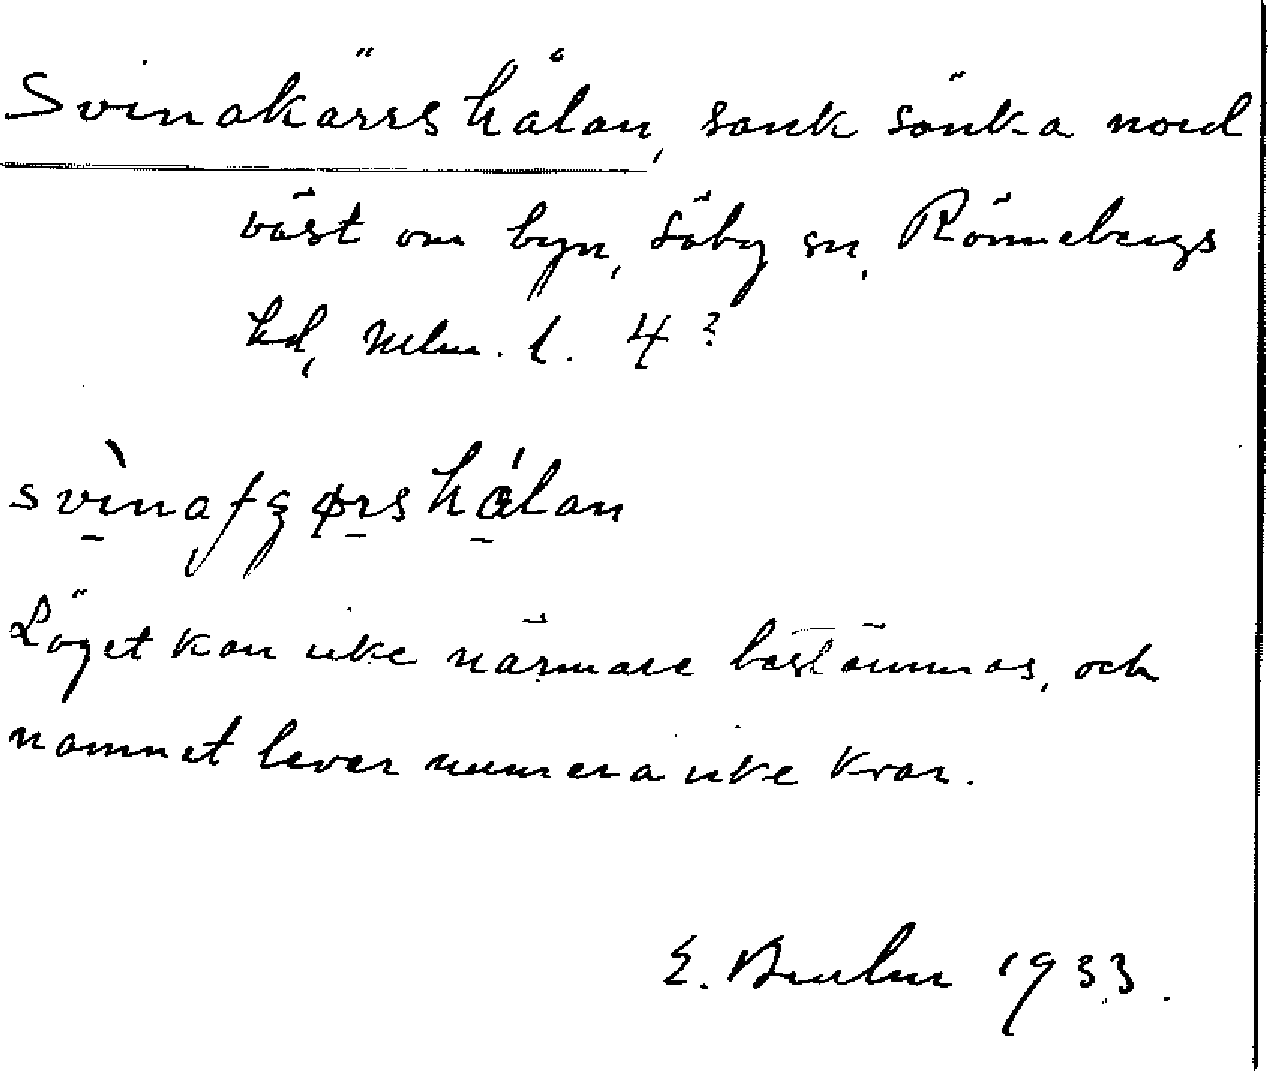 Svinakärrshålan, sank sänka nord
väst om byn, Säby sn, Rönnebergs
hd, Mlm. l. 4?
Läget kan icke närmare bestämmas, och
namnet lever numera icke kvar.
E. Bruhn 1933.